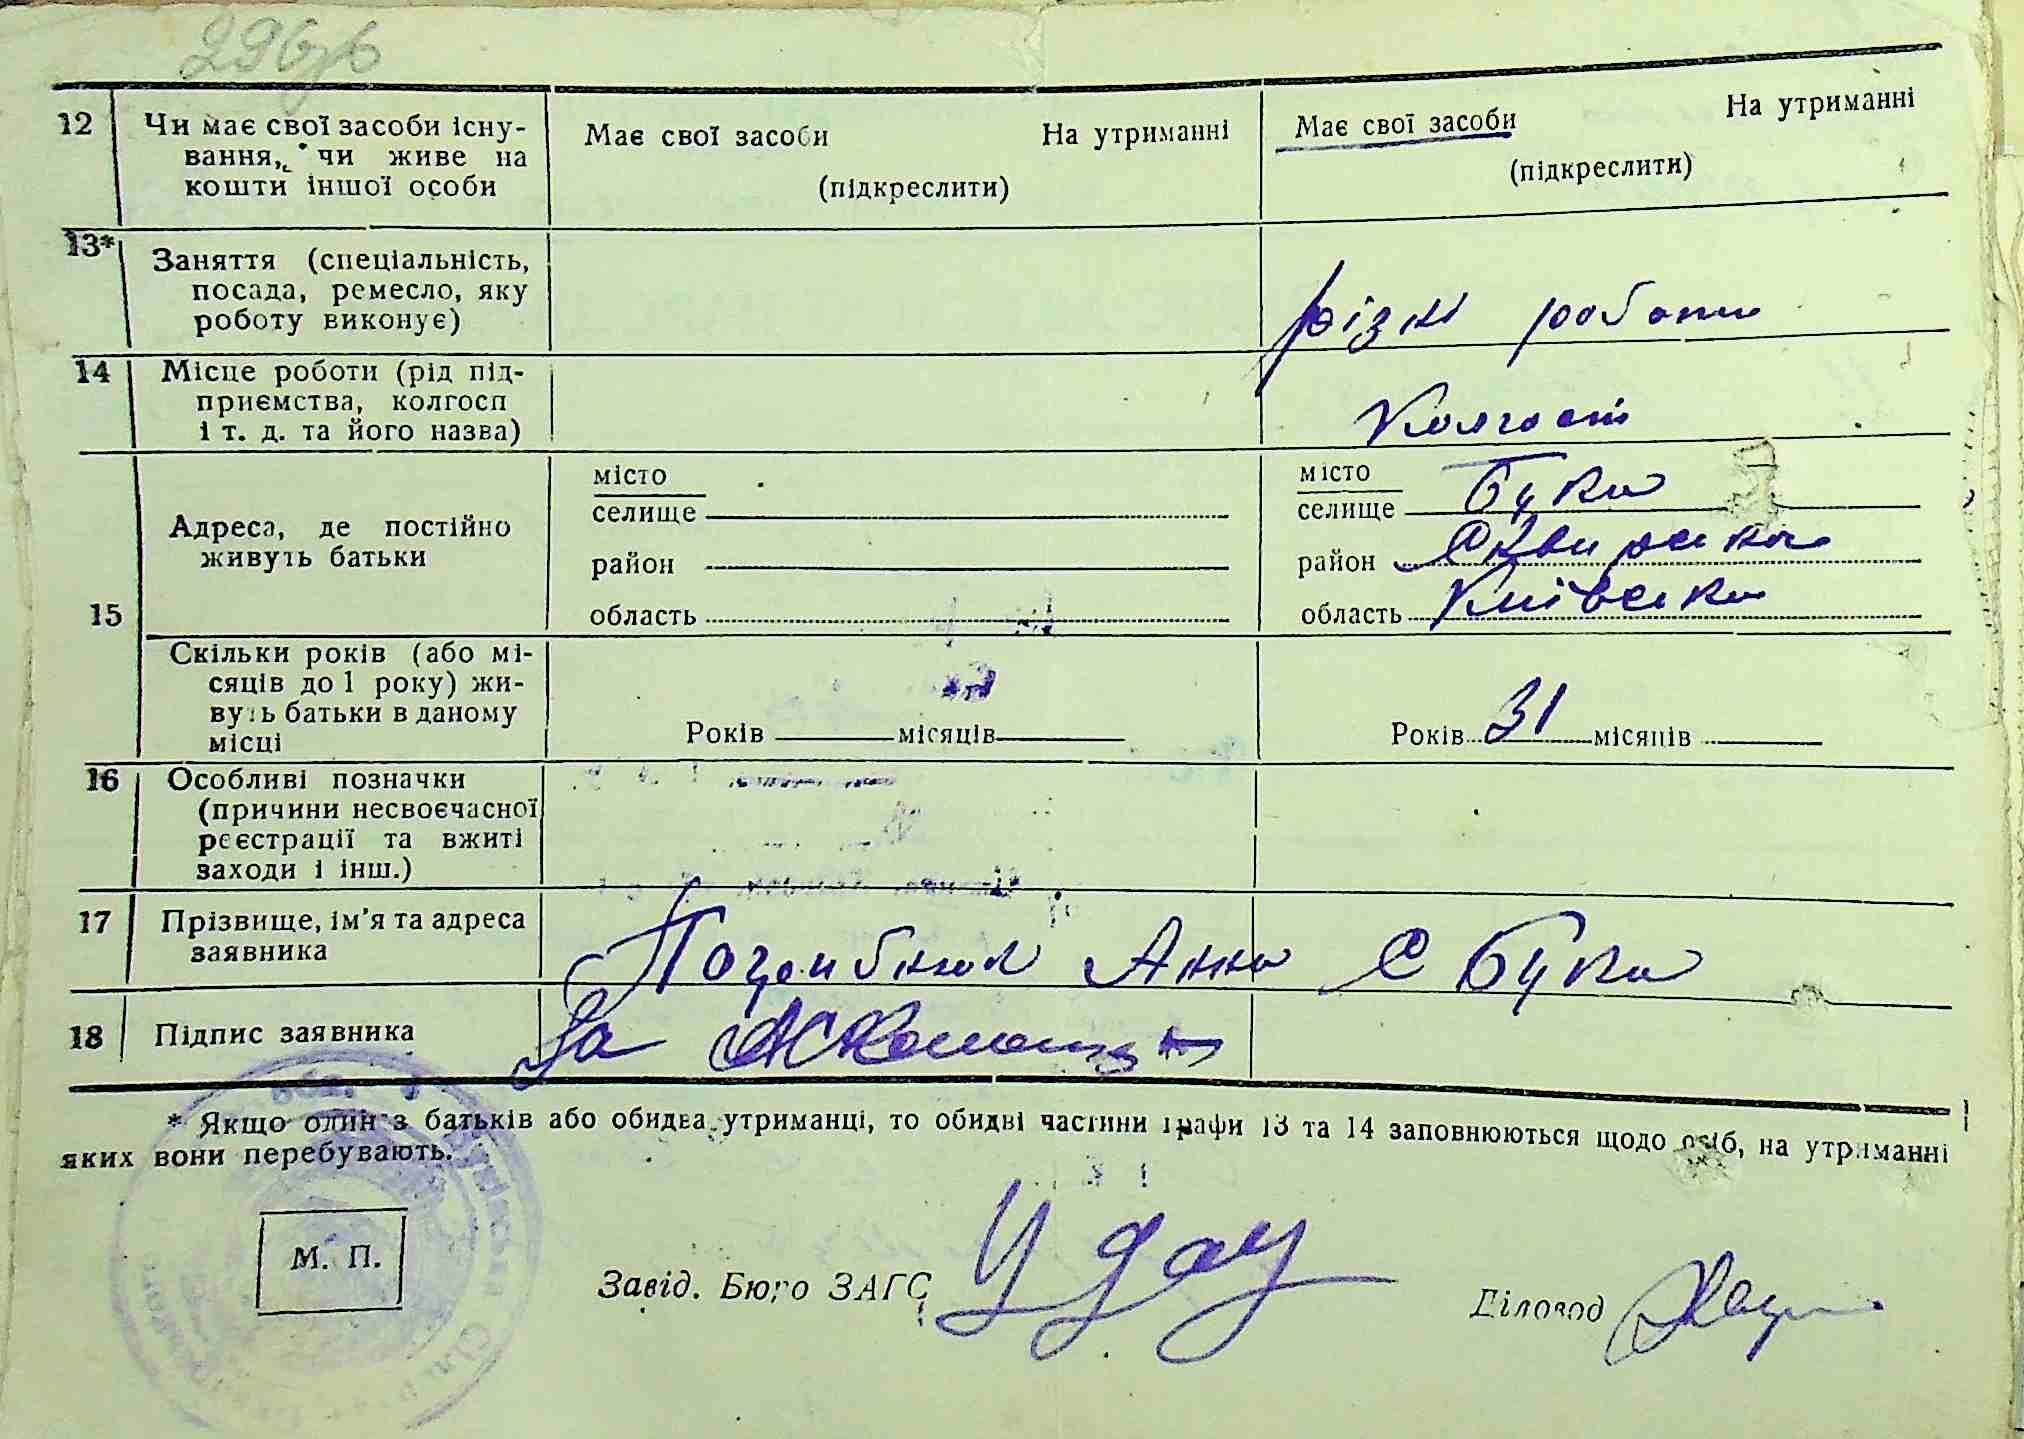 296зв
12 Чи має свої засоби існу- Має свої засоби На утриманні Має свої засоби На утриманні
вання, чи живе на
кошти іншої особи (підкреслити) (підкреслити)
13* Заняття (спеціальність,
посада, ремесло, яку різні роботи
роботу виконує)
14 Місце роботи (рід під-
приємства, колгосп Колгосп
і т. д. та його назва)
15 Адреса, де постійно
живуть батьки
місто
селище
район
область
місто
селище Буки
район Сквирська
область Київська
Скільки років (або мі-
сяців до 1 року) жи-
вуть батьки в даному
місці
Років місяців Років 31 місяців
16 Особливі позначки
(причини несвоєчасної
реєстрації та вжиті
заходи і інш.)
17 Прізвище, ім'я та адреса
заявника Анна С Буки
18 Підпис заявника За
* Якщо один з батьків або обидва утриманці, то обидві частини графи 13 та 14 заповнюються щодо осіб, на утриманні
яких вони перебувають.
М. П.
Завід. Бюро ЗАГС
Діловод